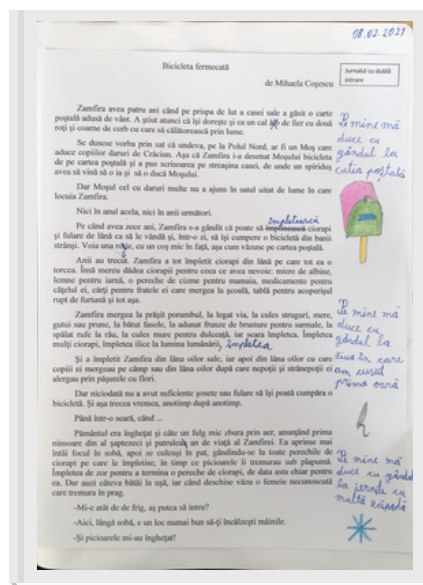 08.02.2021
Bicicleta fermecată
de Mihaela Coșescu
Jurnalul cu dublă
intrare
Zamfira avea patru ani când pe prispa de lut a casei sale a găsit o carte
poștală adusă de vânt. A știut atunci că își dorește și ea un cal de fier cu două
roți și coarne de cerb cu care să călătorească prin lume.
Se dusese vorba prin sat că undeva, pe la Polul Nord, ar fi un Moș care
aduce copiilor daruri de Crăciun. Așa că Zamfira i-a desenat Moșului bicicleta
de pe cartea poștală și a pus scrisoarea pe streașina casei, de unde un spiriduș
avea să vină să o ia și să o ducă Moșului.
Dar Moșul cel cu daruri multe nu a ajuns în satul uitat de lume în care
locuia Zamfira.
Nici în anul acela, nici în anii următori.
împletească
Pe când avea zece ani, Zamfira s-a gândit că poate să ciorapi
și fulare de lână ca să le vândă și, într-o zi, să își cumpere o bicicletă din banii
strânși. Voia una roșie, cu un coș mic în față, așa cum văzuse pe cartea poștală.
Anii au trecut. Zamfira a tot împletit ciorapi din lână pe care tot ea o
torcea. Însă mereu dădea ciorapii pentru ceea ce avea nevoie: miere de albine,
lemne pentru iarnă, o pereche de cizme pentru mamaia, medicamente pentru
cățelul ei, cărți pentru fratele ei care mergea la școală, tablă pentru acoperișul
rupt de furtună și tot așa.
Zamfira mergea la prășit porumbul, la legat via, la cules struguri, mere,
gutui sau prune, la bătut fasole, la adunat frunze de brusture pentru sarmale, la
spălat rufe la râu, la cules mure pentru dulceață, iar seara împletea. Împletea
mulți ciorapi, împletea ilice la lumina lumânării, împletea
Și a împletit Zamfira din lâna oilor sale, iar apoi din lâna oilor cu care
copiii ei mergeau pe câmp sau din lâna oilor după care nepoții și strănepoții ei
alergau prin pășunile cu flori.
Dar niciodată nu a avut suficiente șosete sau fulare să își poată cumpăra o
bicicletă. Și așa trecea vremea, anotimp după anotimp.
Până într-o seară, când ...
Pământul era înghețat și câte un fulg mic zbura prin aer, anunțând prima
ninsoare din al șaptezeci și patrulea an de viață al Zamfirei. Ea aprinse mai
întâi focul în sobă, apoi se culcuși în pat, gândindu-se la toate perechile de
ciorapi pe care le împletise, în timp ce picioarele îi tremurau sub plapumă.
Împletea de zor pentru a termina o pereche de ciorapi, de data asta chiar pentru
ea. Dar auzi câteva bătăi la ușă, iar când deschise văzu o femeie necunoscută
care tremura în prag.
-Mi-e atât de de frig, aș putea să intru?
-Aici, lângă sobă, e un loc numai bun să-ți încălzești mâinile.
-Și picioarele mi-au înghețat!
Pe mine mă
duce cu
gândul la
cutia poștală
Pe mine mă
duce cu
gândul la
ziua în care
am cusut
prima oară
Pe mine mă
duce cu gândul
la iernile cu
multă zăpadă